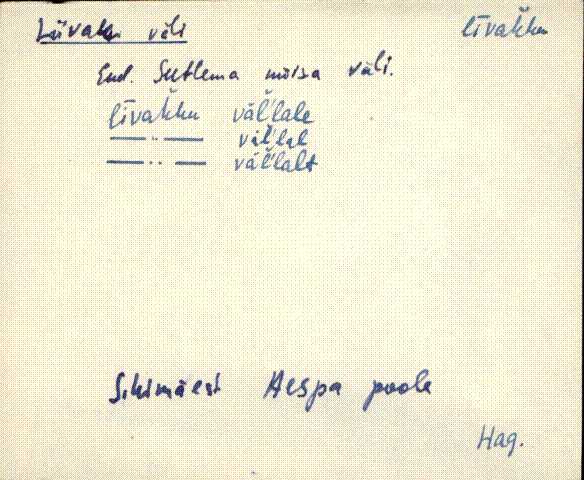 Liivaku väli
līvak̆ku
End. Sutlema mõisa väli.
līvak̆ku väl̆'lale
—— „ —— väl̆'lal
—— „ —— väl̆'lalt
Sikimäest Aespa poole
Hag.